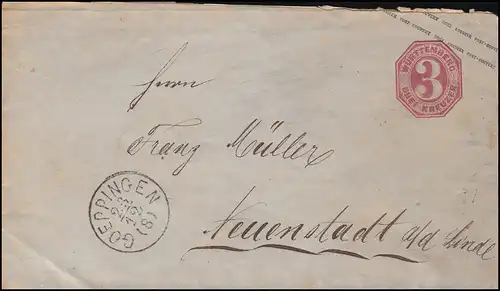 WÜRTTEMBERG
3
DREI KREUZER
Herrn
Franz Müller
Neuenstadt a/d Linde
GOEPPINGEN